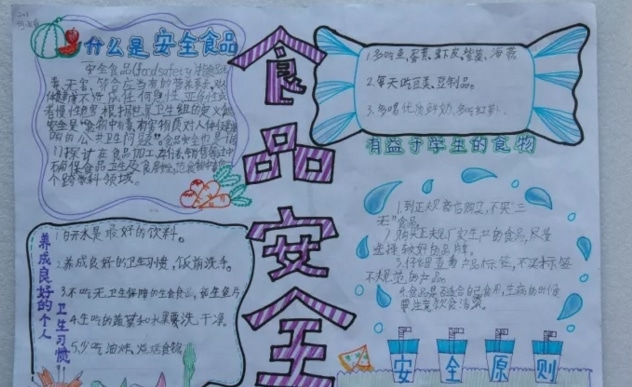 什么是安全食品
安全食品(food safety)指食品无
毒、无害,符合应当有的营养要求,对人
体健康不造成任何急性、亚急性或
者慢性危害。根据世界卫生组织定义,食品
安全是“食物中有毒、有害物质对人体健康影
响的公共卫生问题”。食品安全也是一门
探讨在食品加工、存储、销售等过程中
确保食品卫生及食用安全
个跨学科领域。
食品安全
1.多吃鱼、蛋黄、虾皮、紫菜、海带
2.每天吃豆类、豆制品。
3.多喝优质鲜奶
有益于学生的食物
养成良好的个人
卫生习惯
1.白开水是最好的饮料。
2.养成良好的卫生习惯,饭前洗手。
3.不吃无卫生保障的生食食品,如生鱼片
4.生吃的蔬菜和水果要洗干净。
5.少吃油炸、烧烤食物
1.到正规商店购买,不买“三
无”食品。
2.购买正规厂家生产的食品,尽量
选择较好的品牌。
3.仔细查看产品标签,不买标签
不规范的产品。
4.食品是否适合自己食用,生病的时候
要注意饮食清淡。
安全原则